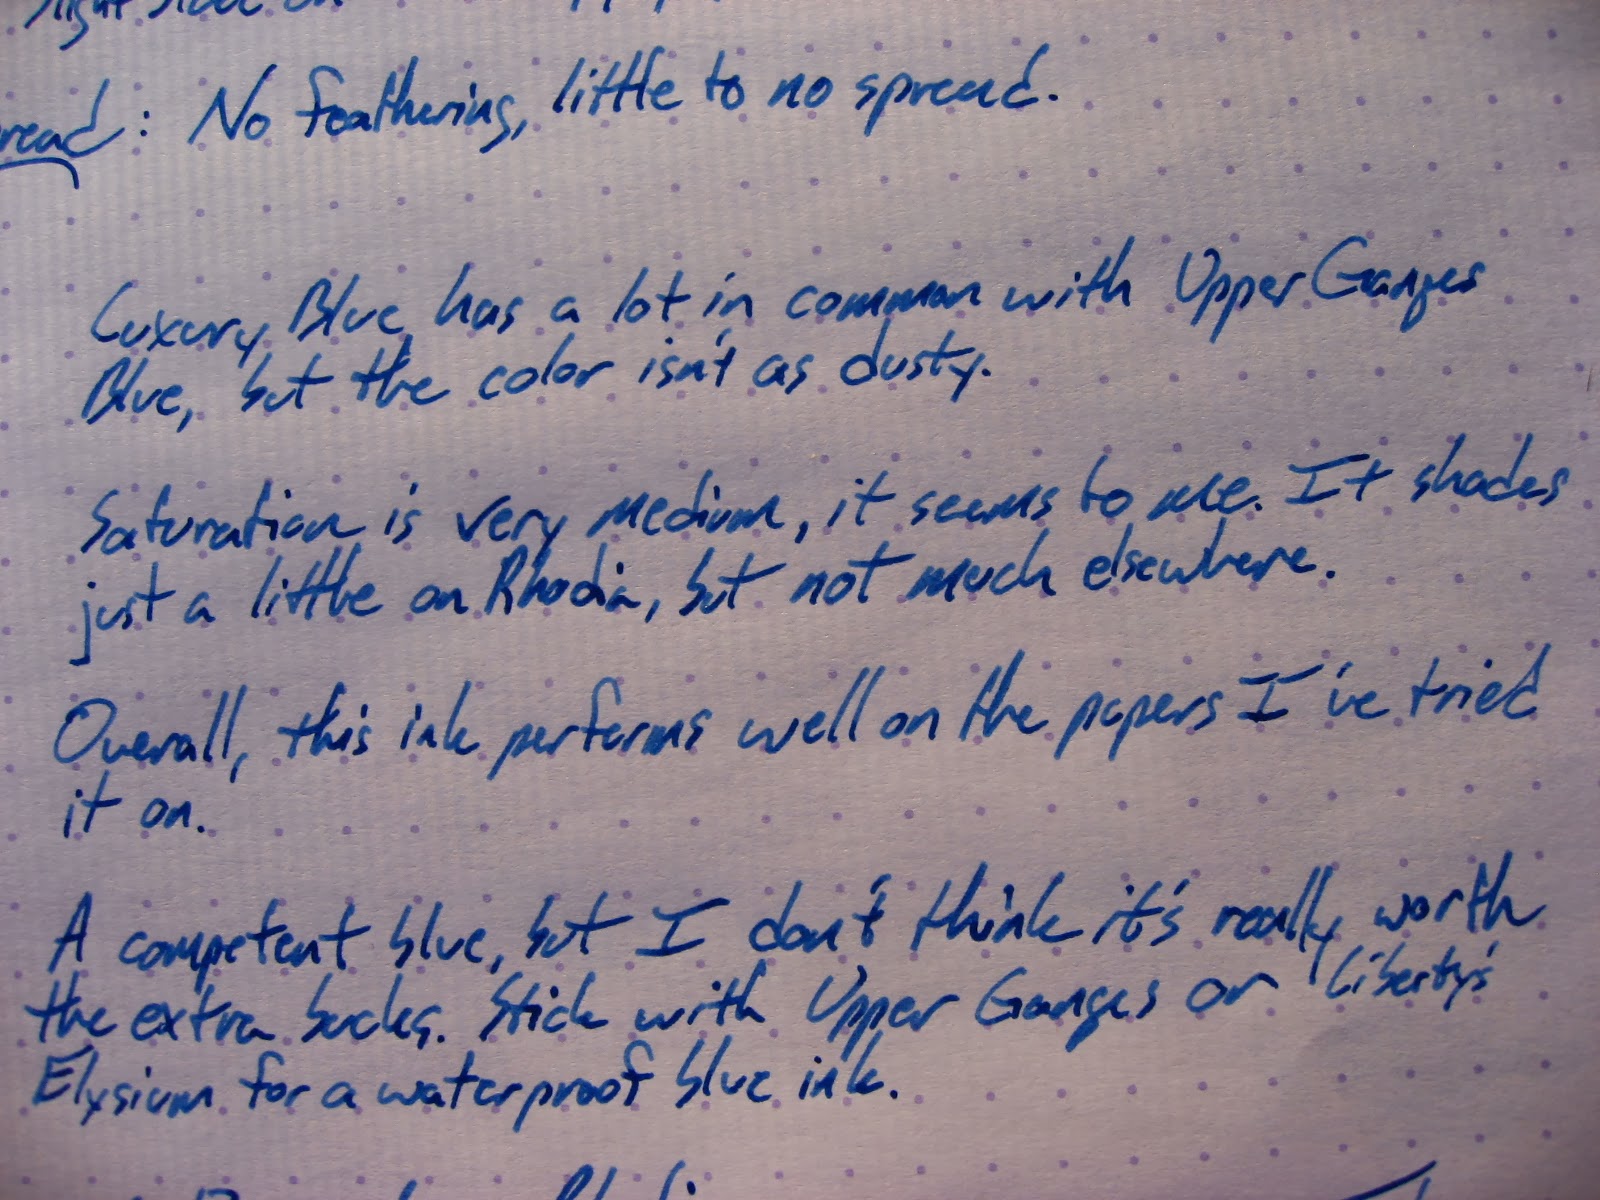 read: No feathering, little to no spread.
Luxury Blue has a lot in common with Upper Ganges
Blue, but the color isn't as dusty.
Saturation is very medium, it seems to me. It shades
just a little on Rhodia, but not much elsewhere.
Overall, this ink performs well on the papers I've tried
it on.
A competent blue, but I don't think it's really worth
the extra bucks. Stick with Upper Ganges or Liberty's
Elysium for a waterproof blue ink.